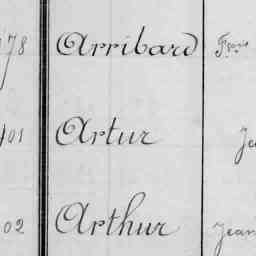 78 Arribard Fçois
901 Artur Je
02 Arthur Jean